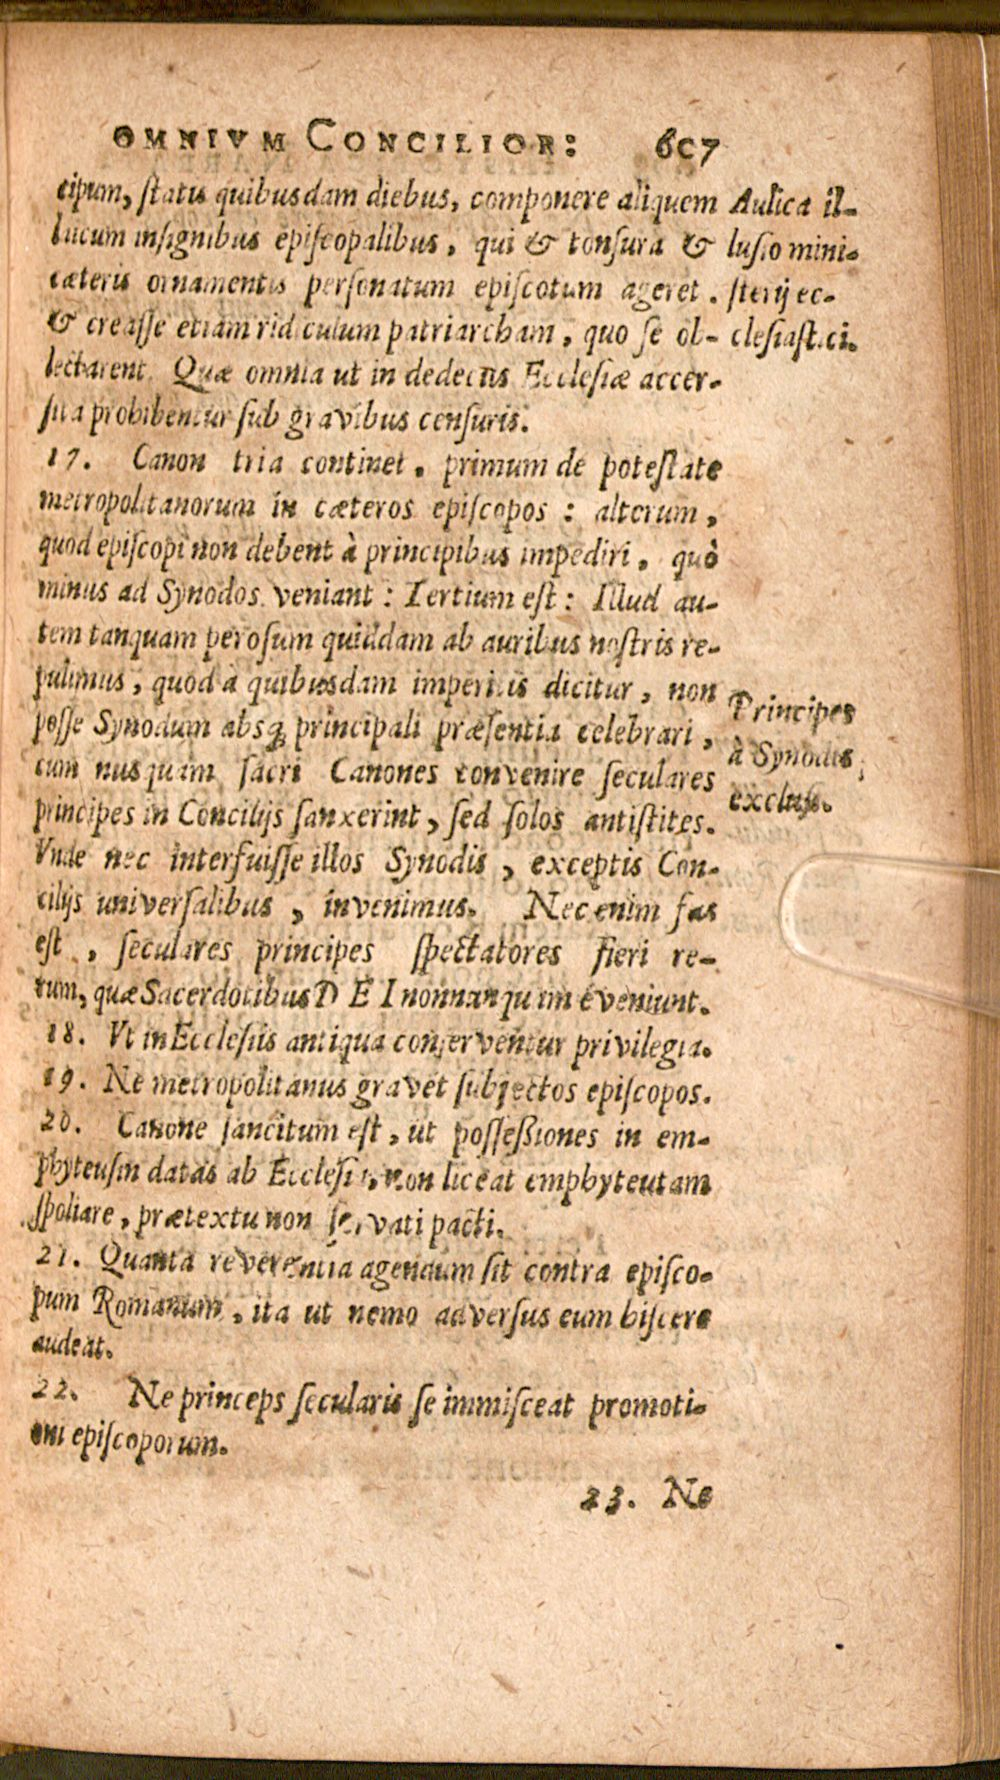 OMNIVM CONCILIOR: 607
cipum, ſtatis quibusdam diebus, componere aliquem
laicum inſignibus epiſcopalibus, qui & tonſura &
cæteris ornamentis perſonatum epiſcotum ageret.
& creaſſe etiam ridiculum patriarcham, quo ſe ob-
lectarent. Quæ omnia ut in dedecus Eccleſiæ accer-
ſita prohibentur ſub gravibus cenſuris.
17. Canon tria continet. primum de poteſtate
metropolitanorum in cæteros epiſcopos: alterum,
quod epiſcopi non debent à principibus impediri, quò
minus ad Synodos veniant: Tertium eſt: Illud au-
tem tanquam peroſum quiddam ab auribus noſtris re-
pulimus, quod à quibusdam imperitis dicitur, non
poſſe Synodum absq; principali præſentia celebrari,
cum nusquam ſacri Canones convenire ſeculares
principes in Concilijs ſanxerint, ſed ſolos antiſtites.
Vnde nec interfuiſſe illos Synodis, exceptis Con-
cilijs univerſalibus, invenimus. Nec enim fas
eſt, ſeculares principes ſpectatores fieri re-
rum, quæ Sacerdotibus DEI nonnanquam eveniunt.
18. Vt in Eccleſiis antiqua conſerventur privilegia.
19. Ne metropolitanus gravet ſubjectos epiſcopos.
20. Canone ſancitum eſt, ut poſſeßiones in em-
phyteuſin datas ab Eccleſia, non liceat emphyteutam
ſpoliare, prætextu non ſervati pacti.
21. Quanta reverentia agendum ſit contra epiſco-
pum Romanum, ita ut nemo adverſus eum hiſcere
audeat.
22. Ne princeps ſecularis ſe immiſceat promoti-
oni epiſcoporum.
23. Ne
Aulica il-
luſio mini-
ſterij ec-
cleſiaſtici.
Principes
à Synodis
excluſi.